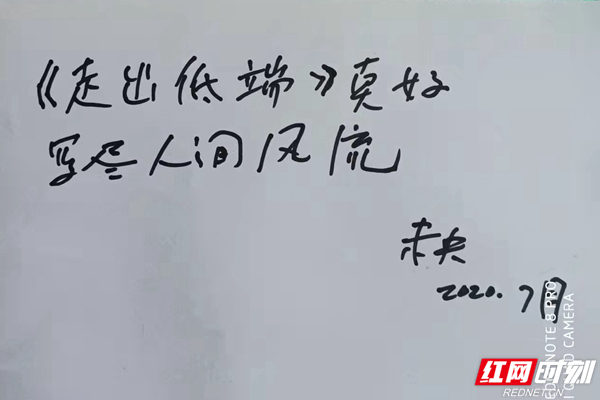 《走出低端》真好
写尽人间风流
未央
2020.7月
REDMI NOTE 8 PRO
AI QUAD CAMERA
红网时刻
REDNET.CN